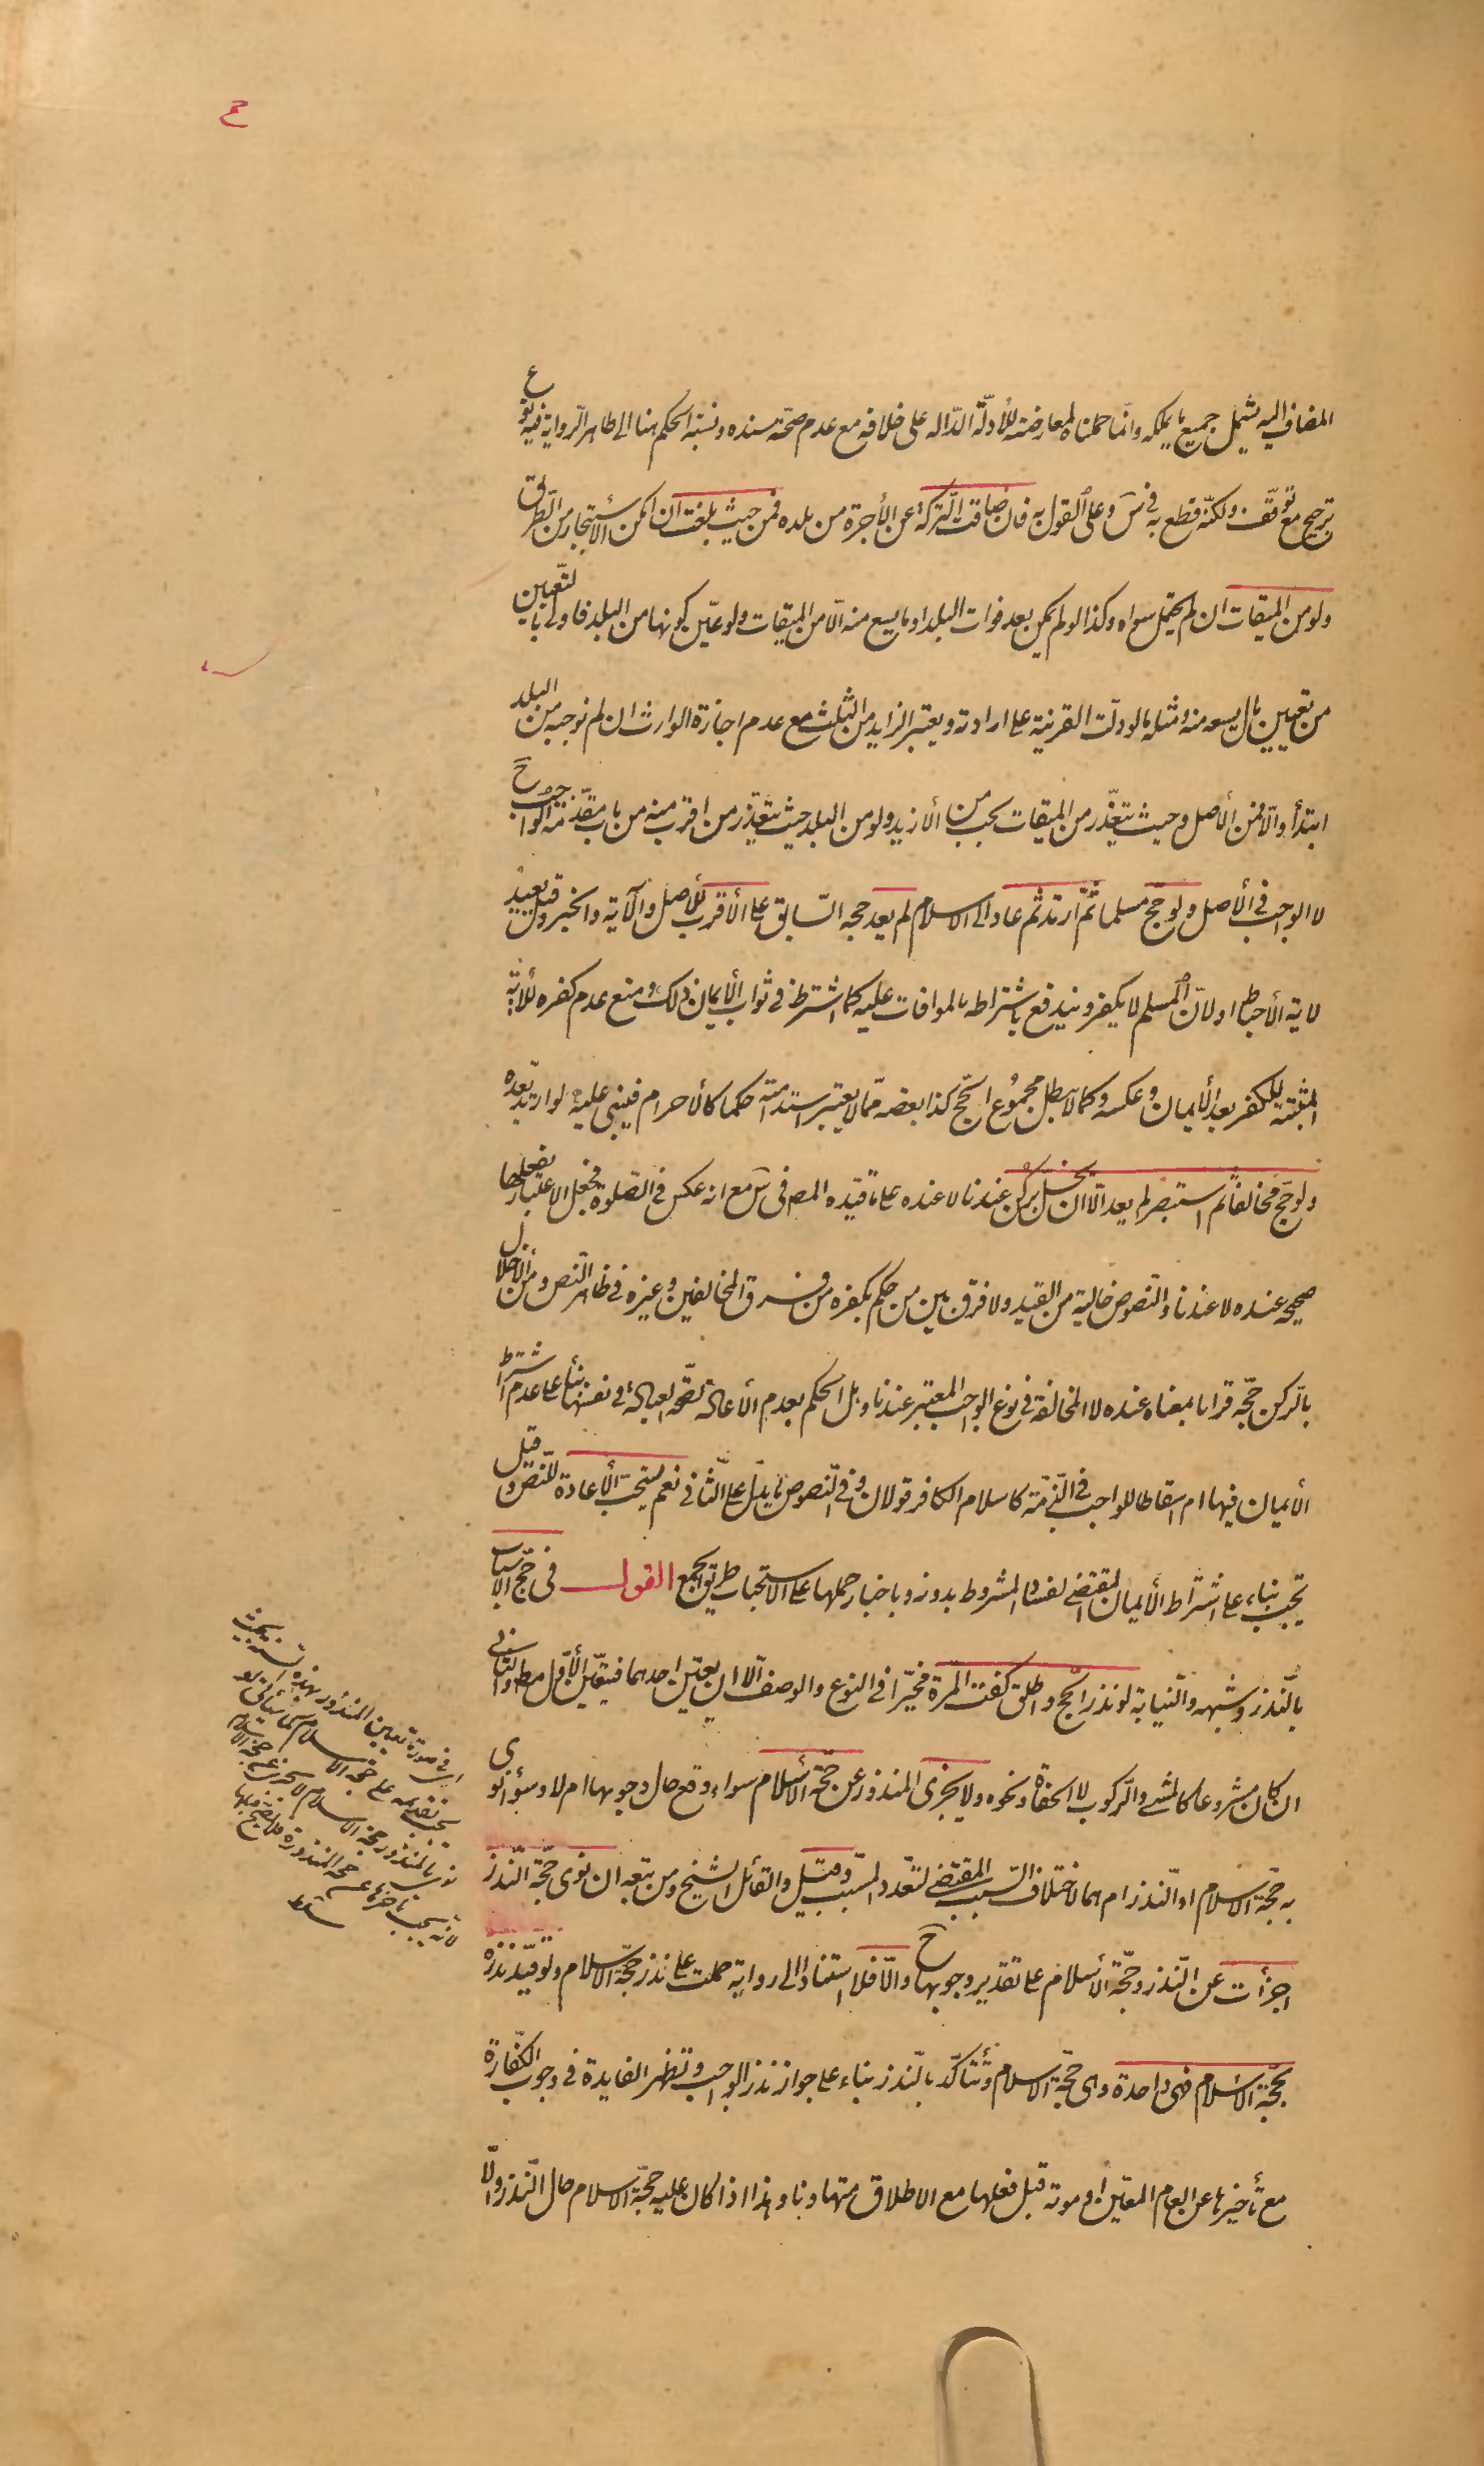 المضاف اليه يشمل جميع ما يملكه وانّما حملناه لمعارضته للأدلّة الدّالّه على خلافه مع عدم صحّة سنده ونسبة الحكم هنا الى ظاهر الرّواية فيه نوع
ترجيح مع توقّف ولكنّه قطع به فى سَ وعلى القول به فان ضاقت التّركة عن الأجرة من بلده فمن حيث بلغت ان امكن الأستيجار من الطّريق
ولو من الميقات ان لم يحتمل سواه وكذا لو لم يمكن بعد فوات البلد او ما يسع منه الّا من الميقات ولو عيّن كونها من البلد فاولى بالتّعيين
من تعيين مال يسعه منه ومثله ما لو دلّت القرينة على ارادته ويعتبر الزايد من الثّلث مع عدم اجازة الوارث ان لم نوجبه من البلد
ابتدأ والّا فمن الأصل وحيث يتعذّر من الميقات يجب من الأزيد ولو من البلد حيث يتعذّر من اقرب منه من باب مقدّمة الواجب حَ
لا الواجب فى الأصل ولو حجّ مسلما ثمّ ارتد ثم عاد الى الاسلام لم يعد حجه السّابق على الأقرب للأصل والآية والخبر وقيل يعيد
لاية الأحباط او لانّ المسلم لا يكفر ويندفع باشتراطه بالموافات عليه كما اشترط فى ثواب الأيمان ذلك ومنع عدم كفره للاية
المثبتة للكفر بعد الأيمان وعكسه وكما لا يبطل مجموع الحّج كذا بعضه ممّا لا يعتبر استدامته حكما كالأحرام فيبنى عليه لو ارتد بعده
ولو حجّ مخالفاً ثم استبصر لم يعد الّا ان يخلّ بركن عندنا لا عنده على ما قيّده المص فى سَ مع انه عكس فى الصّلوة فجعل الاعتبار بفعلها
صحيحه عنده لا عندنا والنّصوص خالية من القيد ولا فرق بين من حكم بكفره من فرق المخالفين وغيره فى ظاهر النّص ومن الأخلال
بالرّكن حجّه قرانا بمعناه عنده لا المخالفة فى نوع الواجب المعتبر عندنا وهل الحكم بعدم الأعادة لصّحة العبادة فى نفسها بناءً على عدم اشتراط
الأيمان فيها ام اسقاطا للواجب فى الذّمّة كاسلام الكافر قولان وفى النّصوص ما يدلّ على الثّانى نعم يستحبّ الأعادة للنّص وقيل
يجب بناء على اشتراط الأيمان المقتضى لفساد المشروط بدونه وباخبار حملها على الاستحباب طريق الجمع القول فى حجّ الاسباب
بالّنذر وشبهه والنّيابة لو نذر الحج واطلق كفت المرّة مخيّرا فى النوع والوصف الّا ان يعيّن احدهما فيتعيّن الأوّل مط والثّانى
ان كان مشروعا كالمشى والّركوب لا الحفاة ونحوه ولا يجزى المنذور عن حجّة الأسلام سواء وقع حال وجوبها ام لا وسواء نوى
به حجّة الاسلام او النّذر ام هما لاختلاف السّبب المقتضى لتعّدد المسّبب وقيل والقائل الشيخ ومن تبعه ان نوى حجّة النّذر
اجزأت عن النّذر وحجّة الأسلام على تقدير وجوبها حَ والّا فلا استنادا الى رواية حملت على نذر حجّة الاسلام ولو قيّد نذره
بحّجة الأسلام فهى واحدة وهى حجّة الاسلام وتتأكّد بالنّذر بناء على جواز نذر الواجب وتظهر الفايدة فى وجوب الكفّارة
مع تأخيرها عن العام المعيّن او موته قبل فعلها مع الاطلاق متهاونا وهذا اذا كان عليه حجّة الاسلام حال النّذر والّا
فى صورة تعيين المنذور بهذه السنة
يجب تقديمه على حجة الاسلام
المنذور حجة الاسلام لا يجزى عن حجة الاسلام